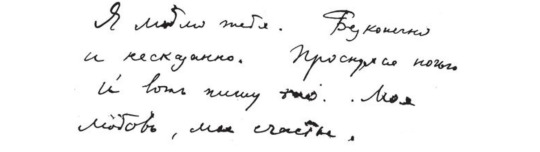 Я люблю тебя. Бесконечно
и несказанно. Проснулся ночью
и вот пишу это. Моя
любовь, мое счастье.